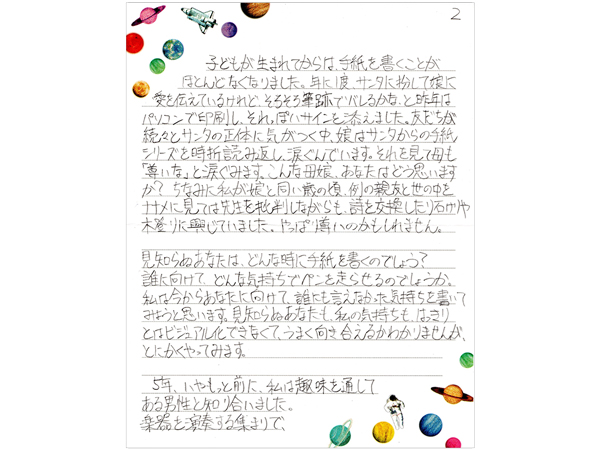 2
子どもが生まれてからは、手紙を書くことが
ほとんどなくなりました。年に1度、サンタに扮して娘に
愛を伝えているけれど、そろそろ筆跡でバレるかな、と昨年は
パソコンで印刷し、それっぽいサインを添えました。友だちが
続々とサンタの正体に気がつく中、娘はサンタからの手紙
シリーズを時折読み返し、涙ぐんでいます。それを見て母も
「尊いな」と涙ぐみます。こんな母娘、あなたはどう思います
か? ちなみに私が娘と同い歳の頃、例の親友と世の中を
ナナメに見ては先生を批判しながらも、詩を交換したり石けりや
木登りに興じていました。やっぱ尊いのかもしれません。
見知らぬあなたは、どんな時に手紙を書くのでしょう?
誰に向けて、どんな気持ちでペンを走らせるのでしょうか。
私は今からあなたに向けて、誰にも言えなかった気持ちを書いて
みようと思います。見知らぬあなたも、私の気持ちも、はっきり
とはビジュアル化できなくて、うまく向き合えるかわかりませんが、
とにかくやってみます。
5年、いやもっと前に、私は趣味を通して
ある男性と知り合いました。
楽器を演奏する集まりで、